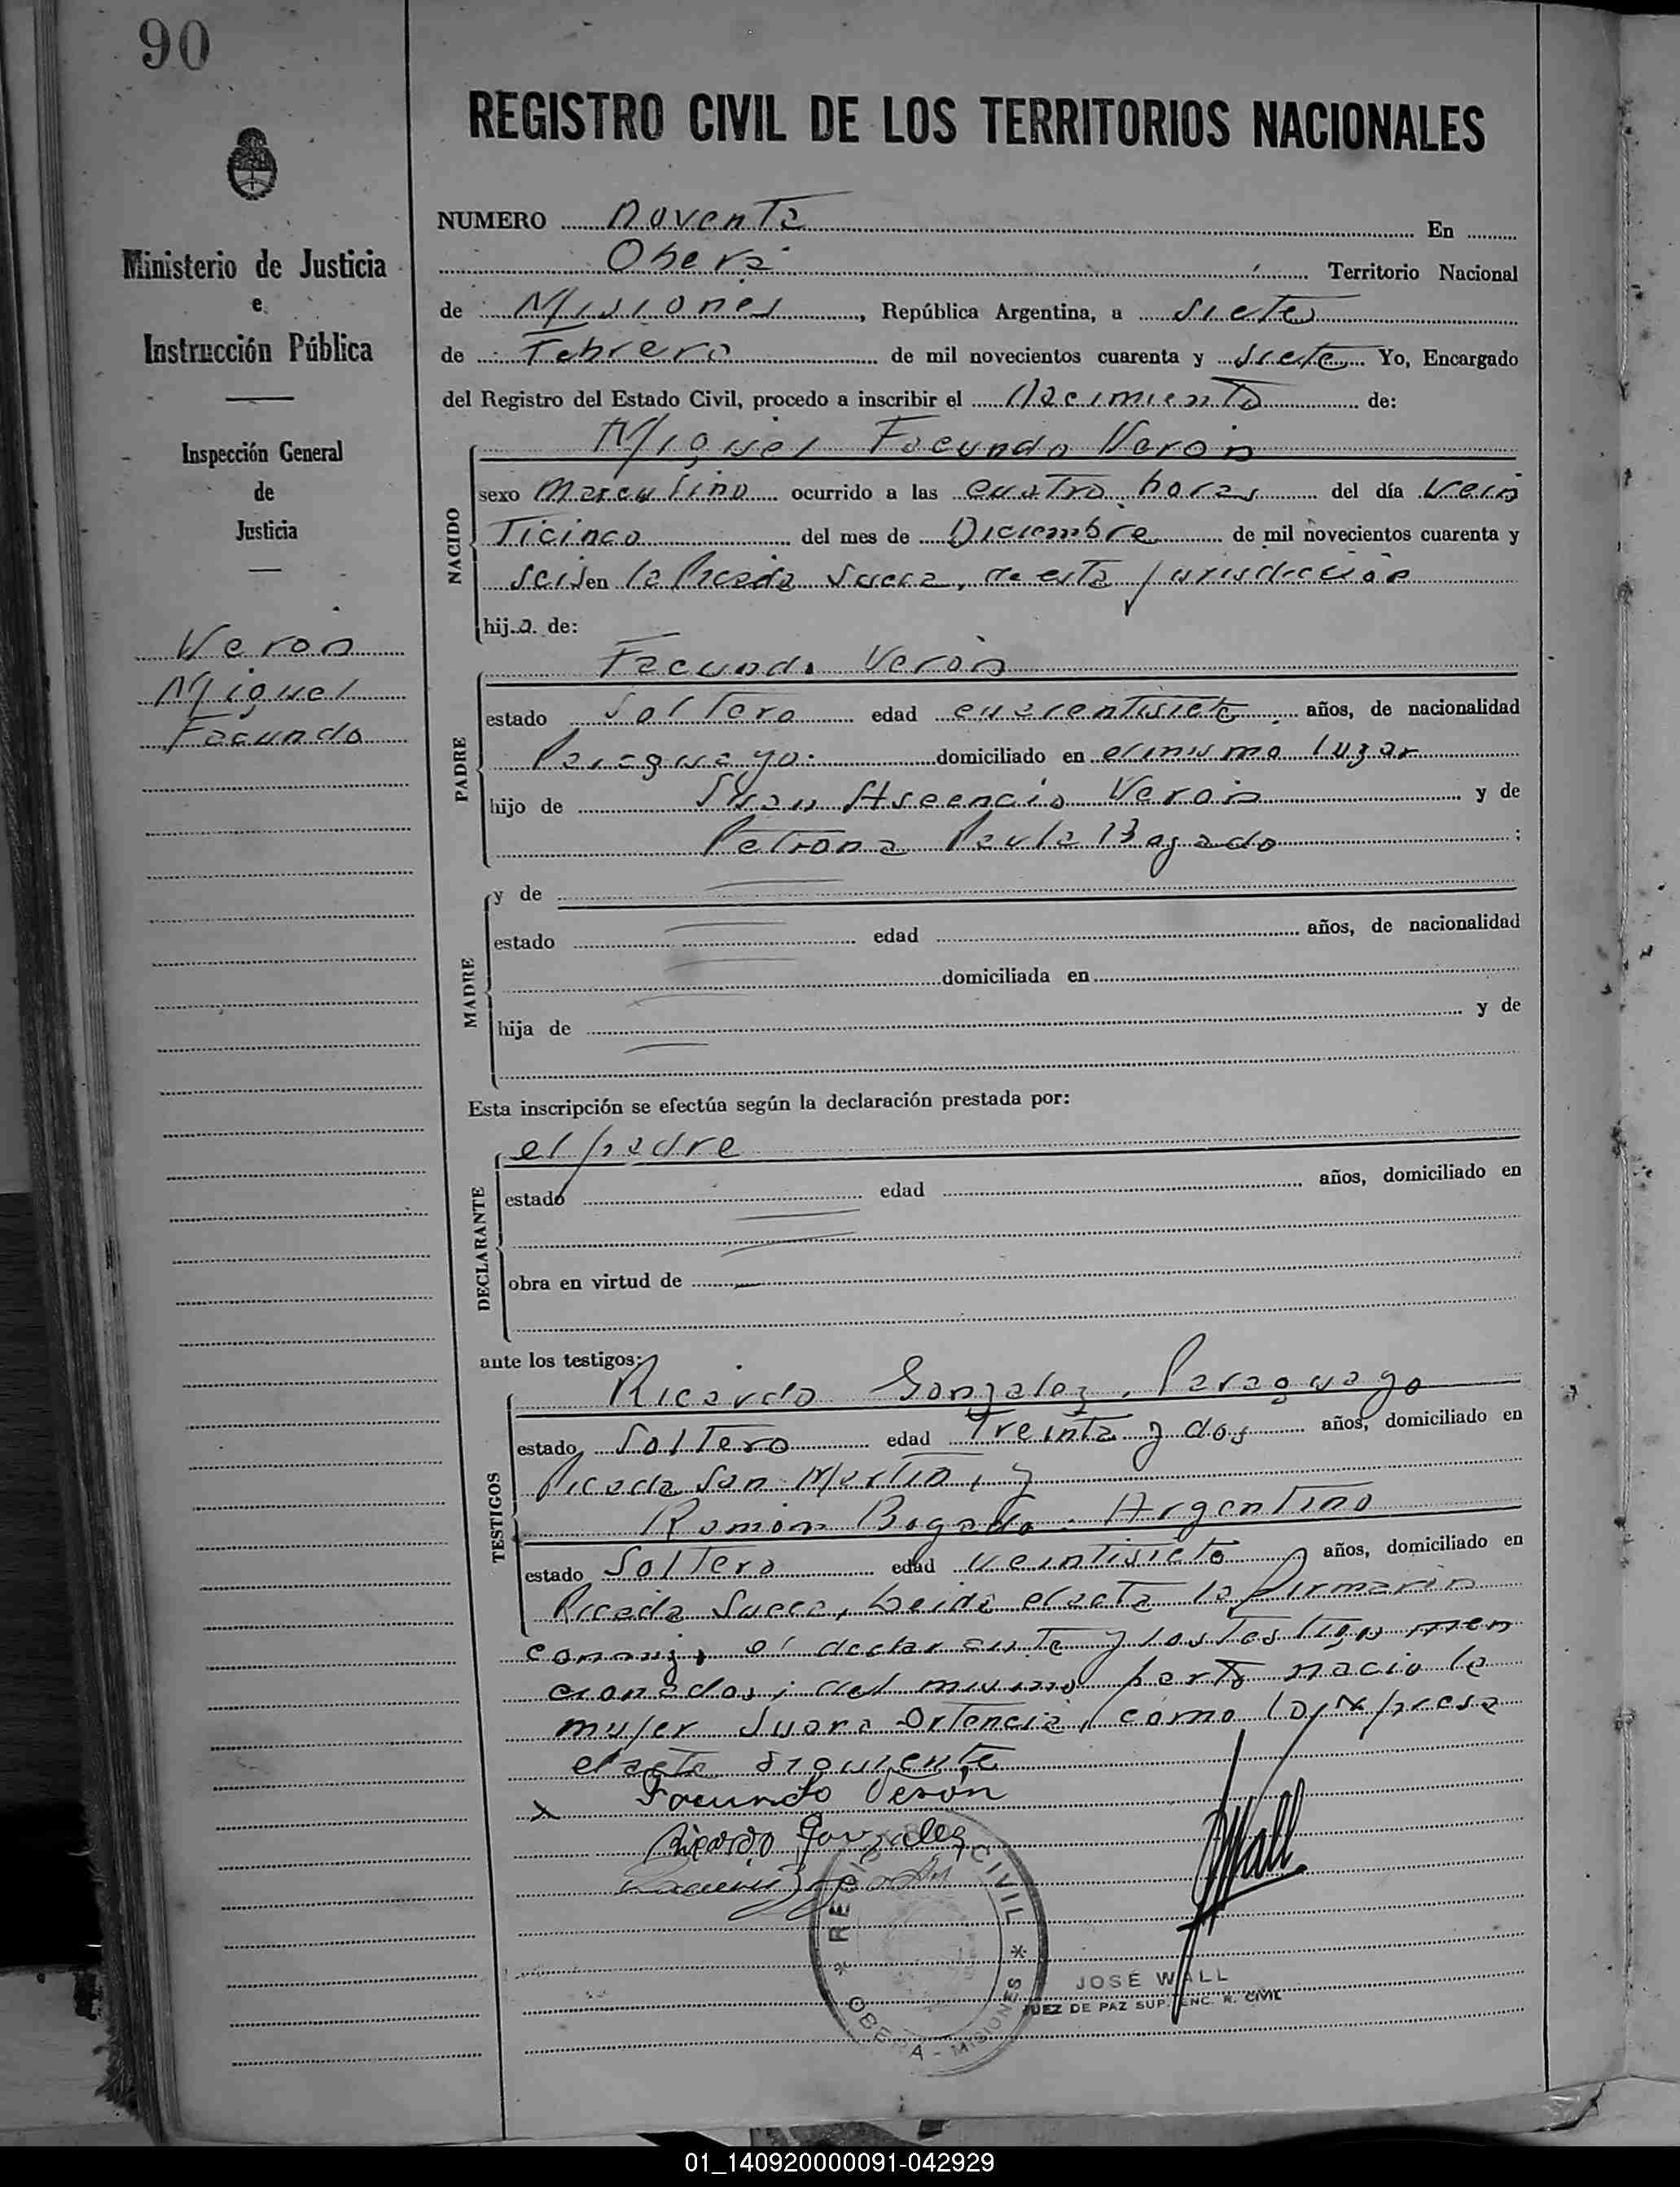 90
REGISTRO CIVIL DE LOS TERRITORIOS NACIONALES
Ministerio de Justicia
e
Instrucción Pública
Inspección General
de
Justicia
Veron
Miguel
Facundo
NUMERO noventa En
Oberá Territorio Nacional
de Misiones, República Argentina, a siete
de Febrero de mil novecientos cuarenta y siete Yo, Encargado
del Registro del Estado Civil, procedo a inscribir el Nacimiento de:
NACIDO
Miguel Facundo Veron
sexo masculino ocurrido a las cuatro horas del día vein
ticinco del mes de Diciembre de mil novecientos cuarenta y
seis en la Picada Sueca, de esta jurisdicción
hijo de:
PADRE
Facundo Verón
estado soltero edad cuarentisiete años, de nacionalidad
Paraguayo domiciliado en el mismo lugar
hijo de Juan Asencio Verón y de
Petrona Paula Bogado ;
MADRE
y de
estado edad años, de nacionalidad
domiciliada en
hija de y de
Esta inscripción se efectúa según la declaración prestada por:
DECLARANTE
el padre
estado edad años, domiciliado en
obra en virtud de
ante los testigos:
TESTIGOS
Ricardo Gonzalez, Paraguayo
estado soltero edad treinta y dos años, domiciliado en
Picada San Martin, y
Ramón Bogado. Argentino
estado soltero edad veintisiete años, domiciliado en
Picada Sueca, Leida el acta la firmarón
conmigo el declarante y los testigos men
cionados; del mismo parto nació la
mujer Juana Ortencia, como lo expresa
el acta siguiente
x Facundo Verón
Ricardo Gonzalez
JWall
REGISTRO CIVIL
OBERA - MISIONES
JOSÉ WALL
JUEZ DE PAZ SUP. ENC. R. CIVIL
01_140920000091-042929